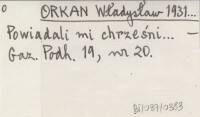 O ORKAN Władysław 1931...
Powiadali mi chrześni... —
Gaz. Podh. 19, nr 20.
BI/037/0383